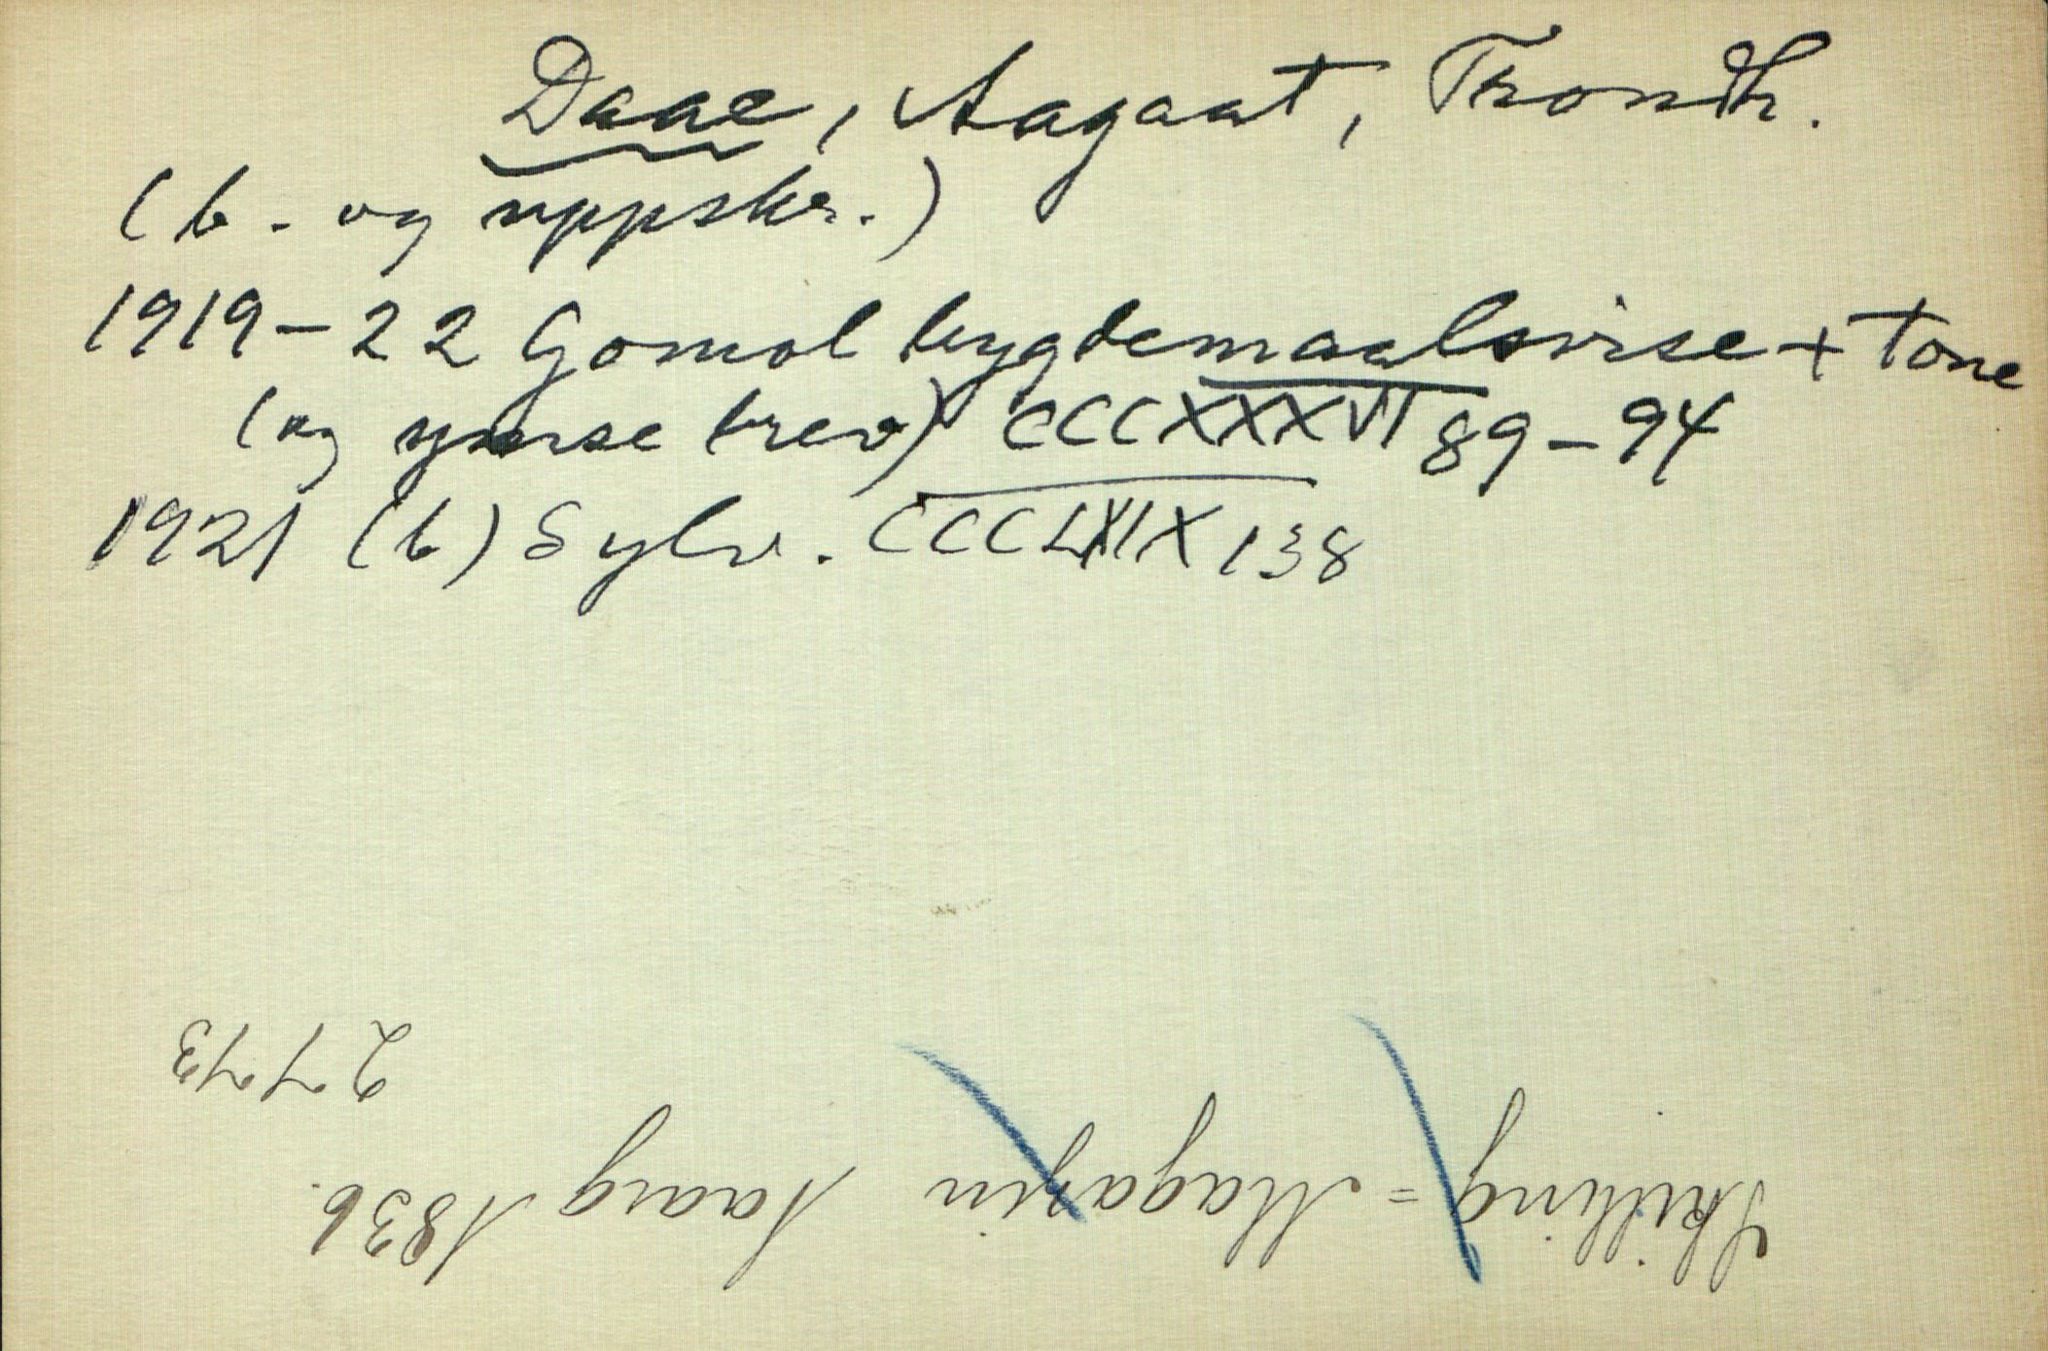 Daae, Aagaat, Trondh.
(b. og uppskr.)
1919-22 Gomol bygdemaalsvise + tone
(og ymse brev) CCCXXXVI 89-94
1921 (b) Sylv. CCCLXIX 138
Skilling=Magazin Aarg 1836.
2773